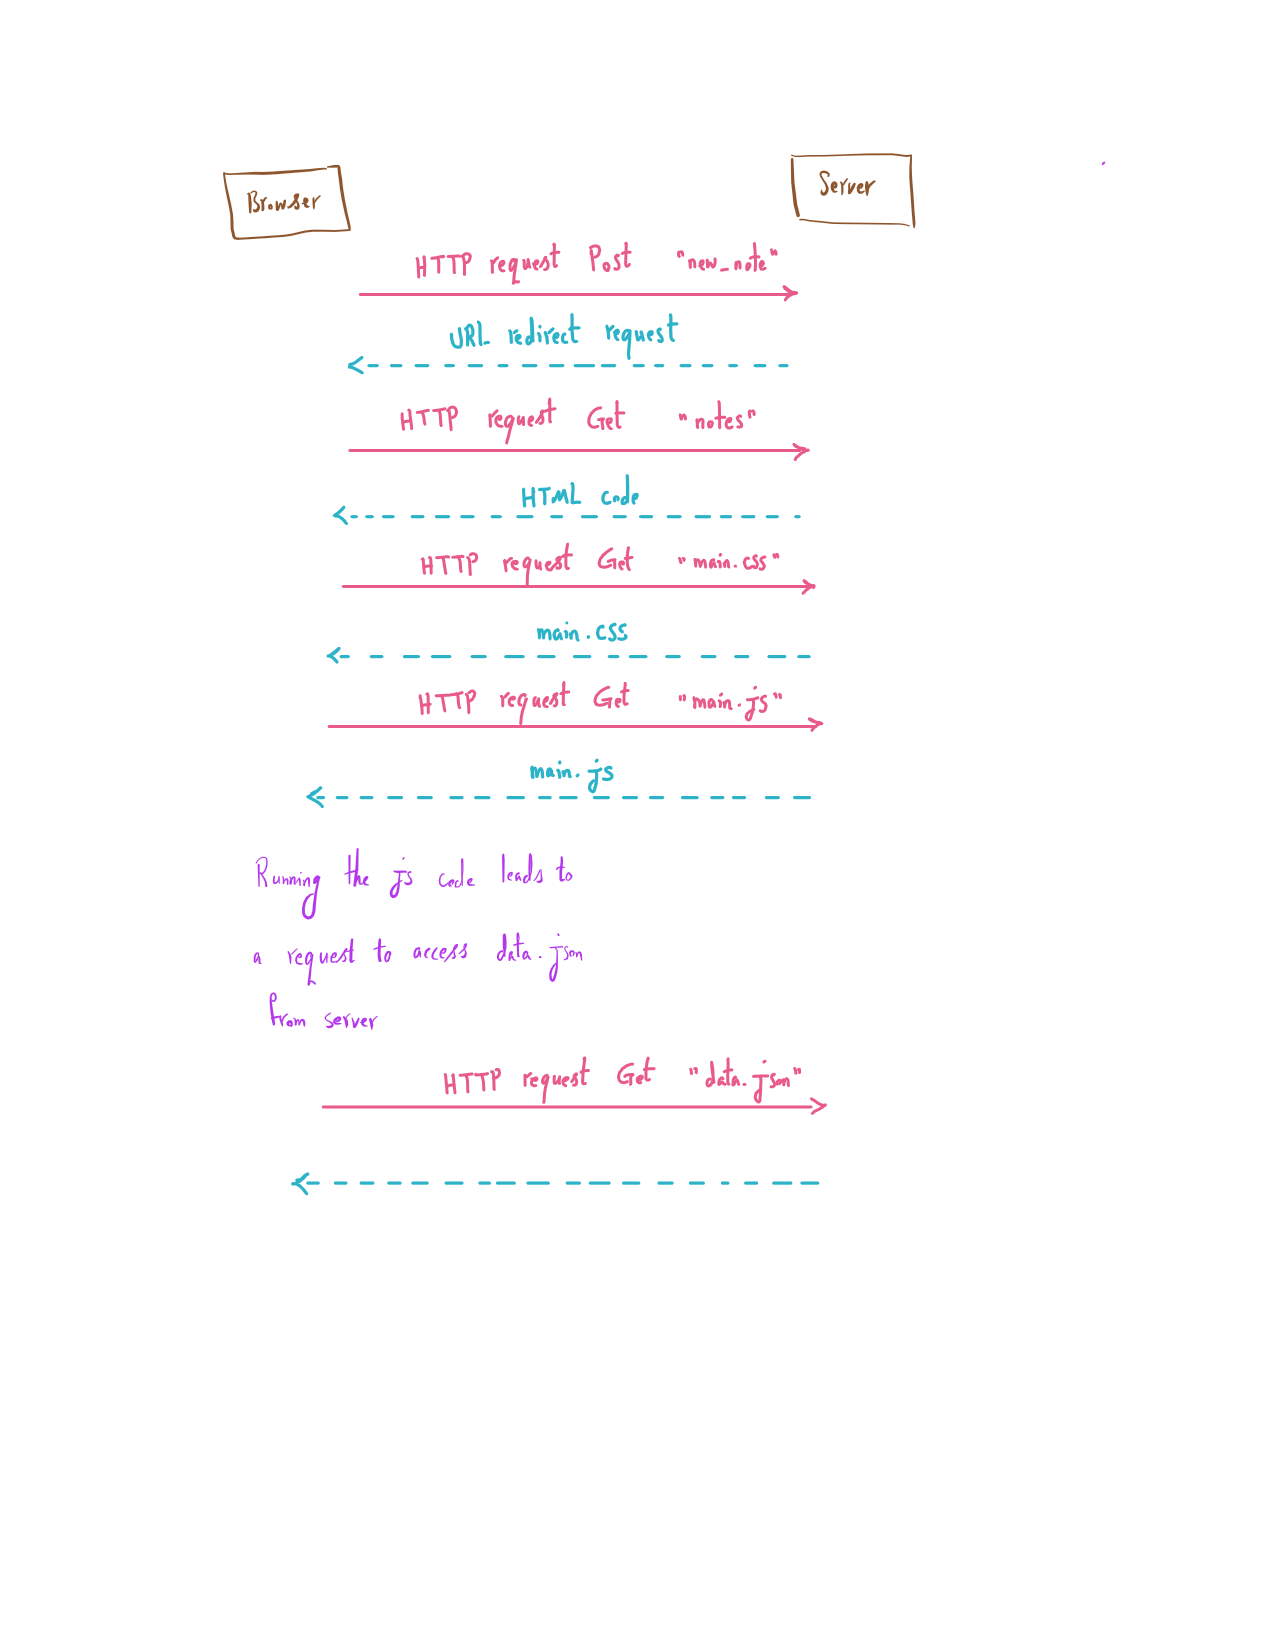 Browser
Server
HTTP request Post "new_note"
URL redirect request
HTTP request Get "notes"
HTML code
HTTP request Get "main.css"
main.css
HTTP request Get "main.js"
main.js
Running the js code leads to
a request to access data.json
from server
HTTP request Get "data.json"